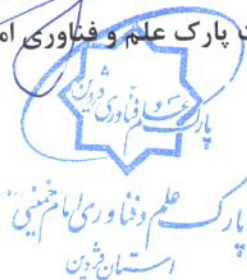 ت پارک علم و فناوری ام
پارک علم و فناوری قزوین
پارک علم و فناوری امام خمینی
استان قزوین